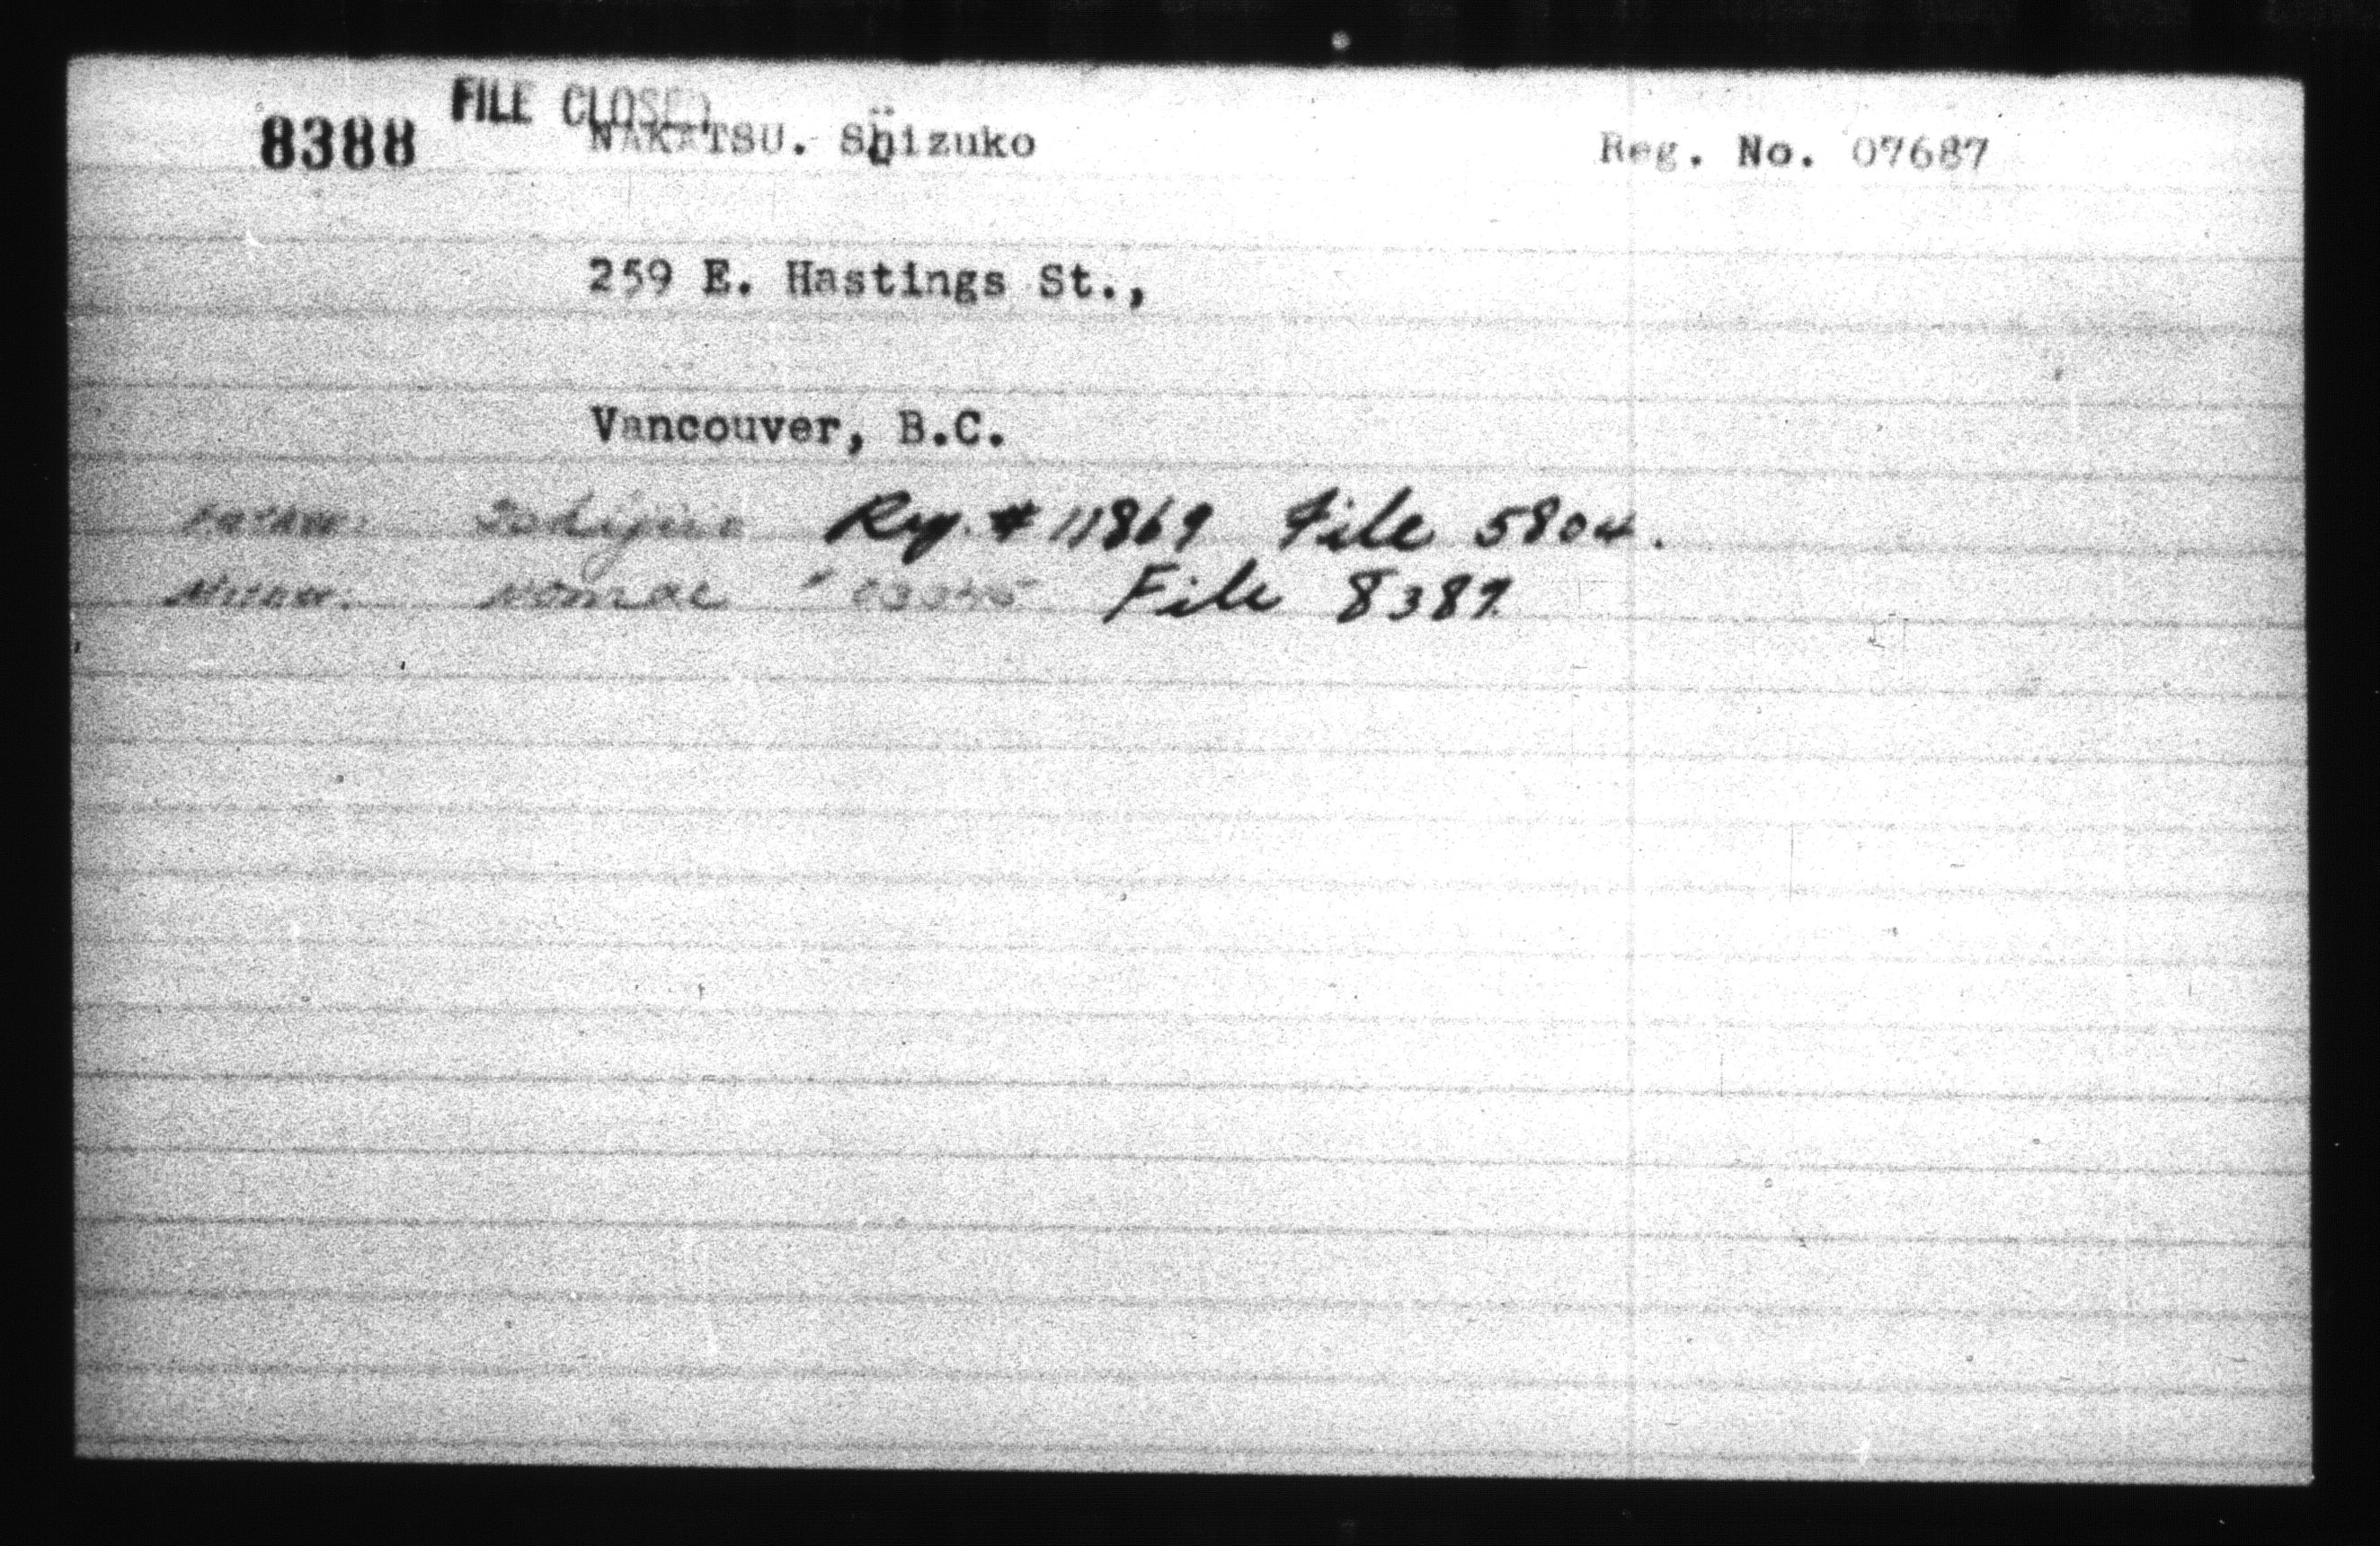 FILE CLOSED
8388 NAKATSU. Shizuko Reg. No. 07687
259 E. Hastings St.,
Vancouver, B.C.
Father: Reg. # 11869 File 5804.
Mother. " File 8387